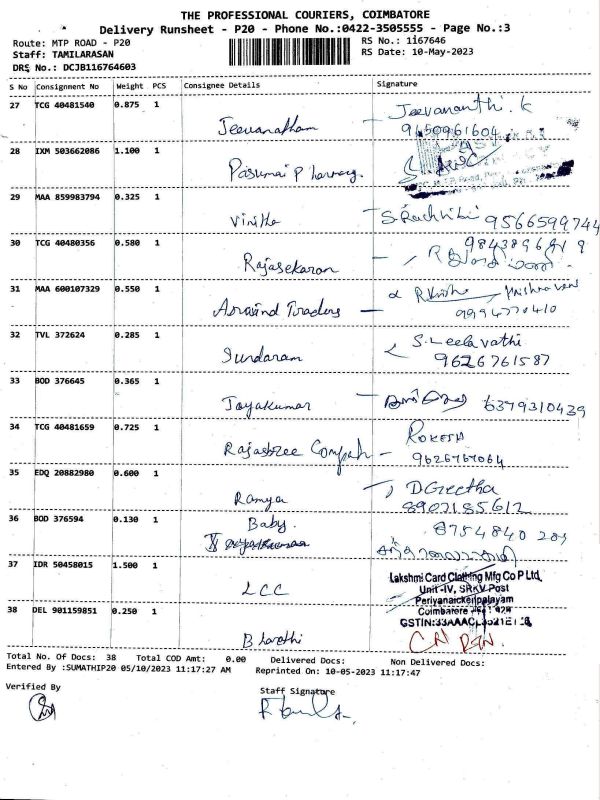 THE PROFESSIONAL COURIERS, COIMBATORE
Delivery Runsheet - P20 - Phone No.:0422-3505555 - Page No.:3
Route: MTP ROAD - P20
RS No.: 1167646
Staff: TAMILARASAN
RS Date: 10-May-2023
DRS No.: DCJB116764603
S No Consignment No Weight PCS Consignee Details Signature
27 TCG 40481540 0.875 1
Jeevanantham
Jeevananthi.K
9150961604
28 IXM 503662086 1.100 1
Pasumai Pharmacy.
29 MAA 859983794 0.325 1
Vinitha
9566599744
30 TCG 40480356 0.580 1
Rajasekaran
31 MAA 600107329 0.550 1
Aravind Traders
9994770410
32 TVL 372624 0.285 1
Sundaram
S.Leelavathi
9626761587
33 BOD 376645 0.365 1
Jayakumar
6379310439
34 TCG 40481659 0.725 1
Rajashree Company
9626767064
35 EDQ 20882980 0.600 1
Ramya
D Geetha
8902185612
36 BOD 376594 0.130 1
Baby.
37 IDR 50458015 1.500 1
LCC
Lakshmi Card Clathing Mfg Co P Ltd,
Unit-IV, SRKV Post
Periyanaickenpalayam
38 DEL 901159851 0.250 1
Bharathi
Total No. Of Docs: 38 Total COD Amt: 0.00 Delivered Docs: Non Delivered Docs:
Entered By :SUMATHIP20 05/10/2023 11:17:27 AM Reprinted On: 10-05-2023 11:17:47
Verified By
Staff Signature